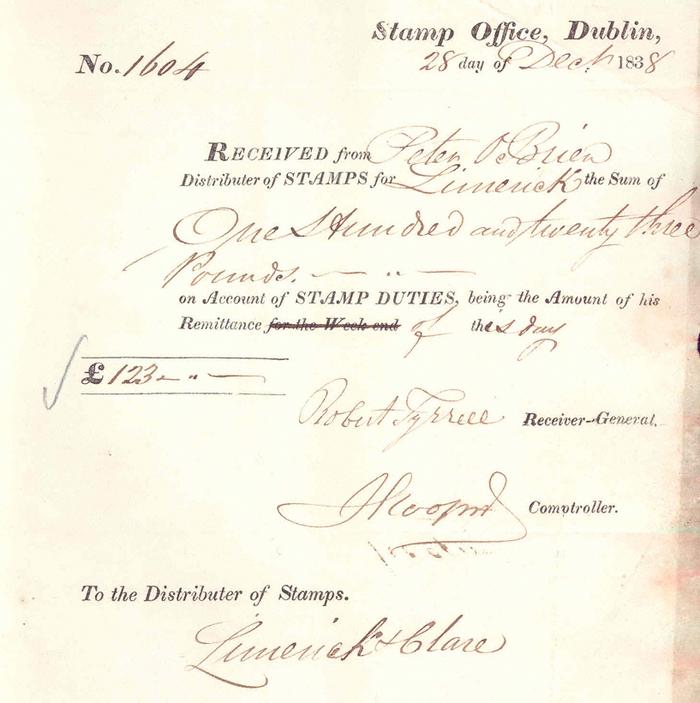 Stamp Office, Dublin,
No. 1604 28 day of Decr. 1838
RECEIVED from Peter O'Brien
Distributer of STAMPS for Limerick the Sum of
One Hundred and twenty three
Pounds. — „ —
on Account of STAMP DUTIES, being the Amount of his
Remittance for the Week end of this day
£ 123 — „ —
Robert Tyrrell Receiver-General.
Comptroller.
To the Distributer of Stamps.
Limerick & Clare